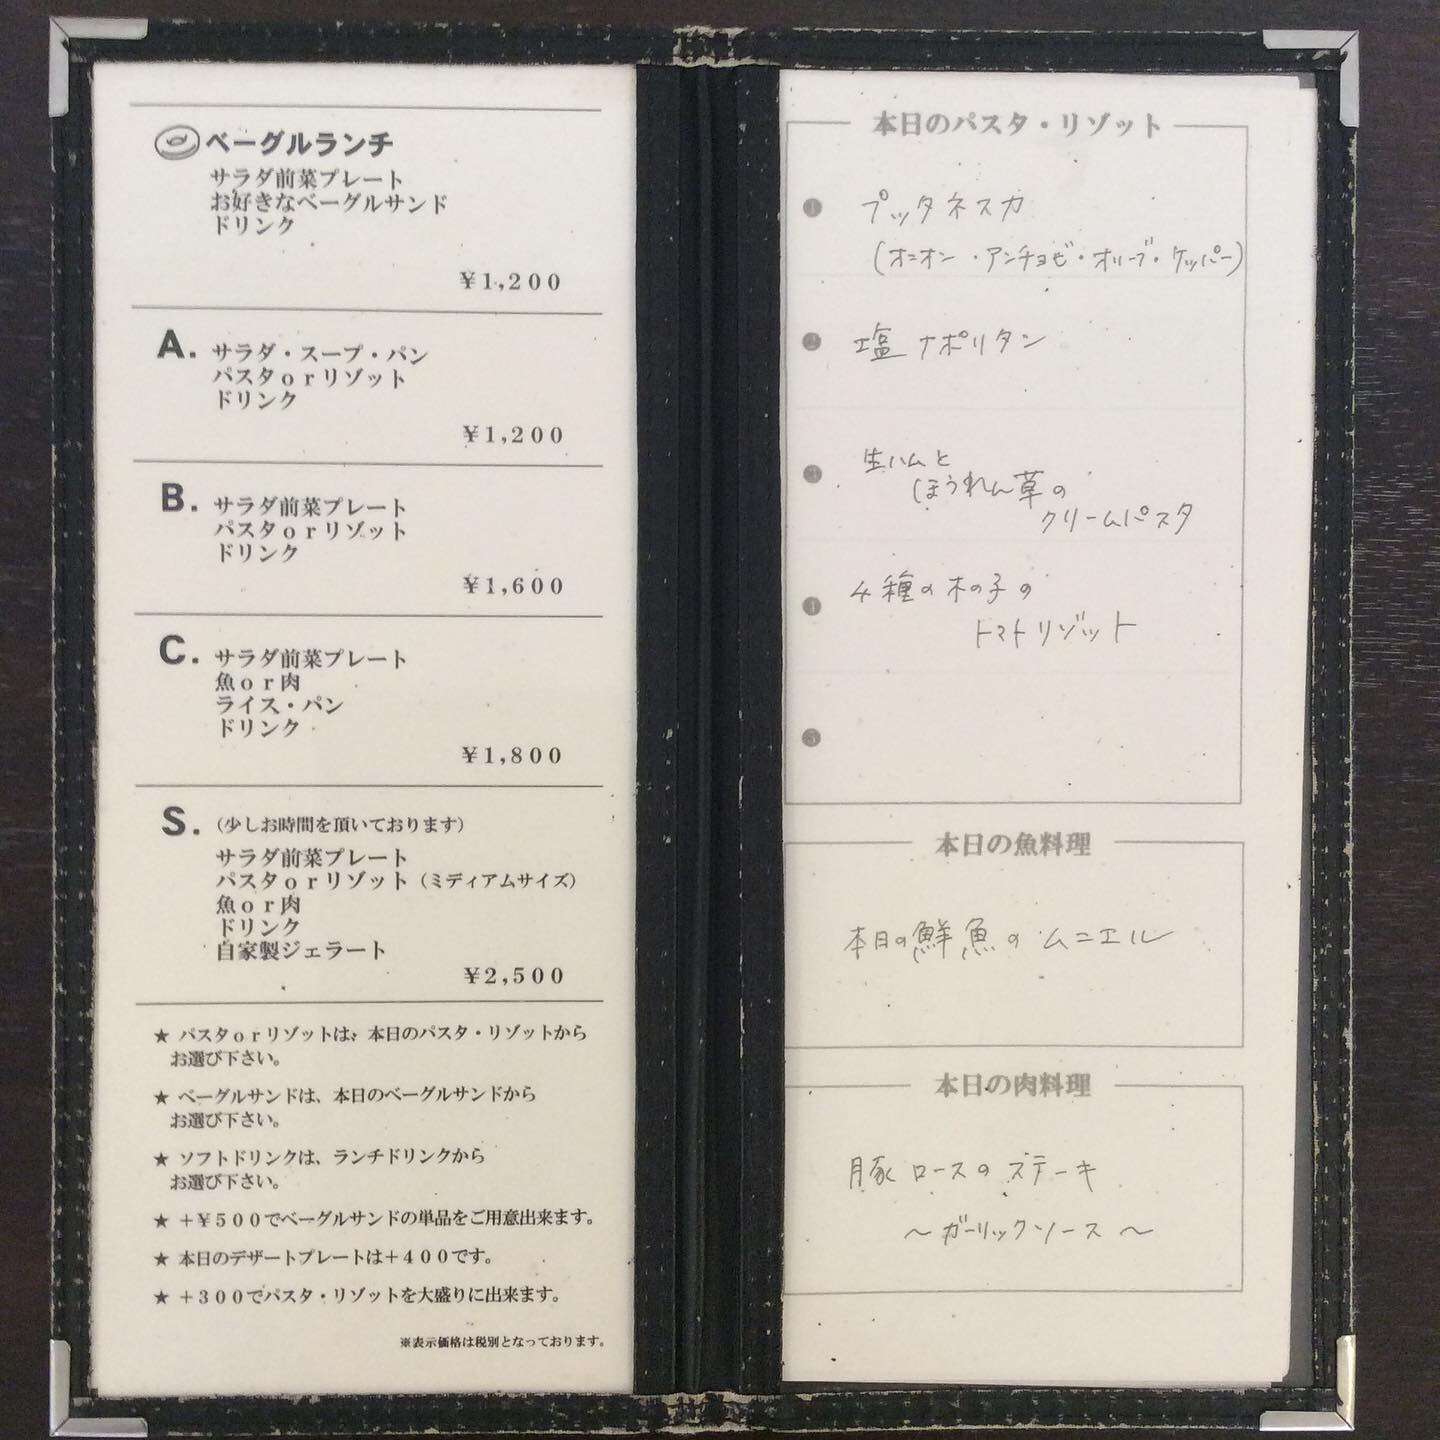 ベーグルランチ
サラダ前菜プレート
お好きなベーグルサンド
ドリンク
¥1,200
A. サラダ・スープ・パン
パスタorリゾット
ドリンク
¥1,200
B. サラダ前菜プレート
パスタorリゾット
ドリンク
¥1,600
C. サラダ前菜プレート
魚or肉
ライス・パン
ドリンク
¥1,800
S. (少しお時間を頂いております)
サラダ前菜プレート
パスタorリゾット(ミディアムサイズ)
魚or肉
ドリンク
自家製ジェラート
¥2,500
★ パスタorリゾットは、本日のパスタ・リゾットから
お選び下さい。
★ ベーグルサンドは、本日のベーグルサンドから
お選び下さい。
★ ソフトドリンクは、ランチドリンクから
お選び下さい。
★ +¥500でベーグルサンドの単品をご用意出来ます。
★ 本日のデザートプレートは+400です。
★ +300でパスタ・リゾットを大盛りに出来ます。
※表示価格は税別となっております。
本日のパスタ・リゾット
❶ プッタネスカ
(オニオン・アンチョビ・オリーブ・ケッパー)
❷ 塩ナポリタン
❸ 生ハムと
ほうれん草の
クリームパスタ
❹ 4種の木の子の
トマトリゾット
❺
本日の魚料理
本日の鮮魚のムニエル
本日の肉料理
豚ロースのステーキ
～ガーリックソース～